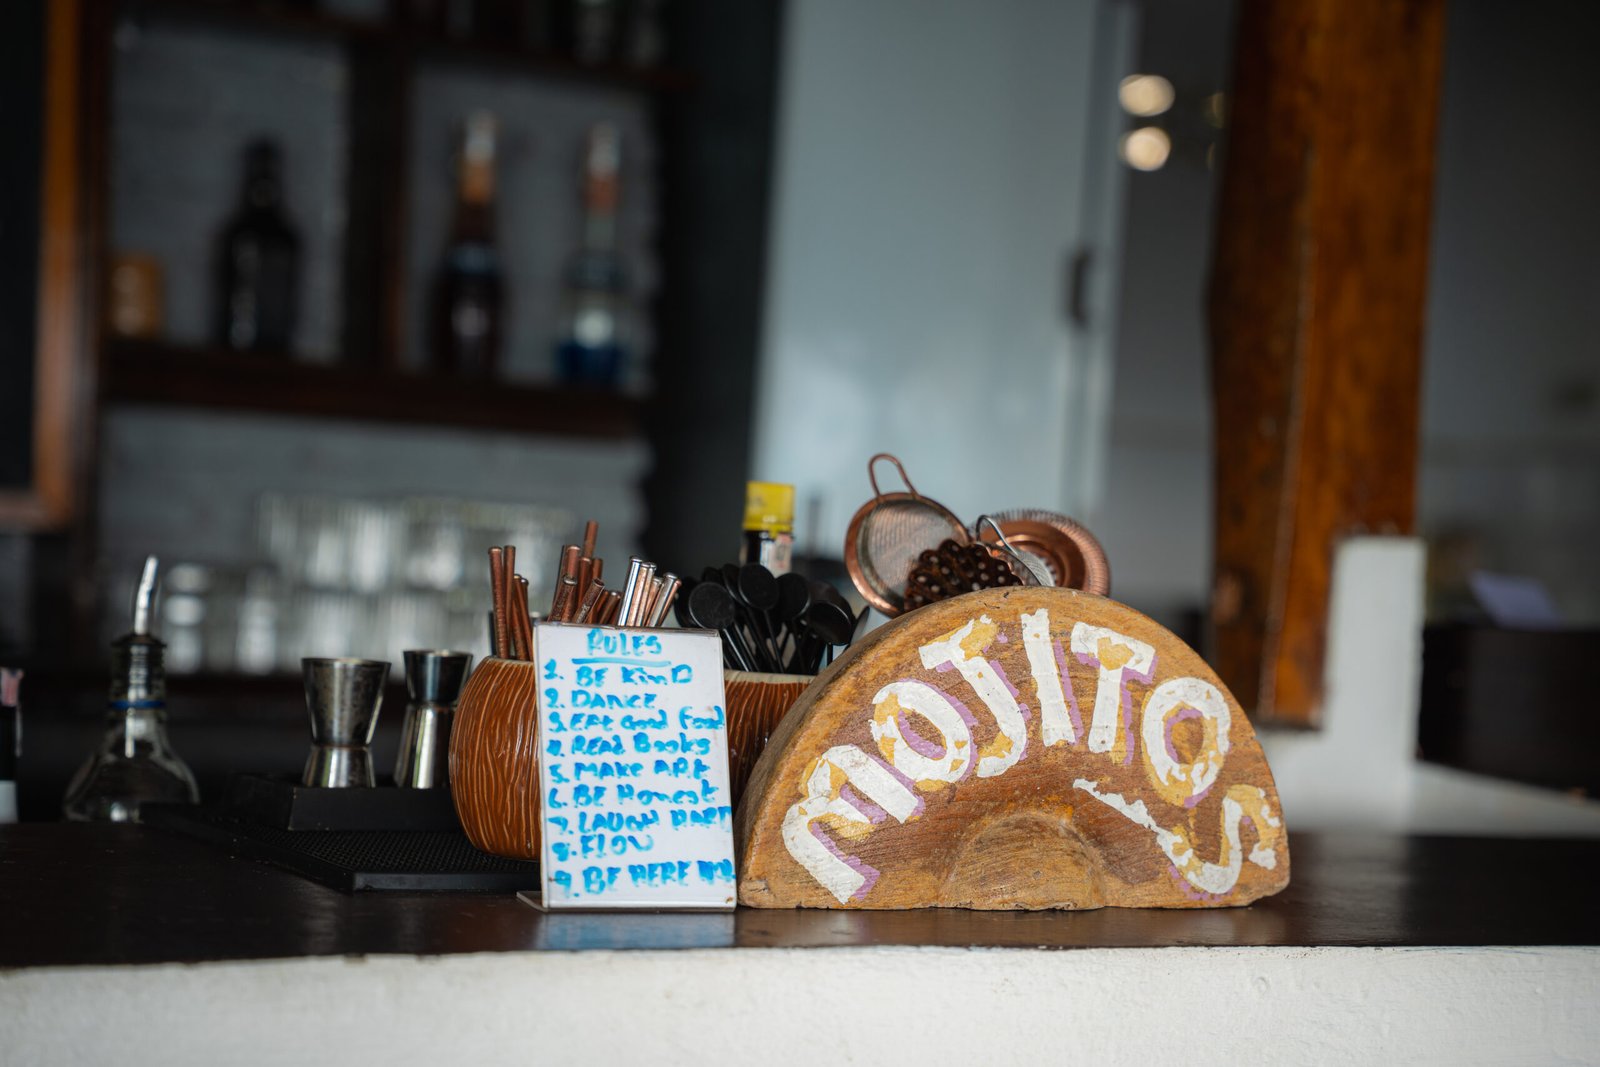 RULES
1. BE KIND
2. DANCE
3. EAT Good Food
4. READ Books
5. MAKE ART
6. BE Honest
7. LAUGH PART
8. FLOW
9. BE HERE NOW
MOJITOS